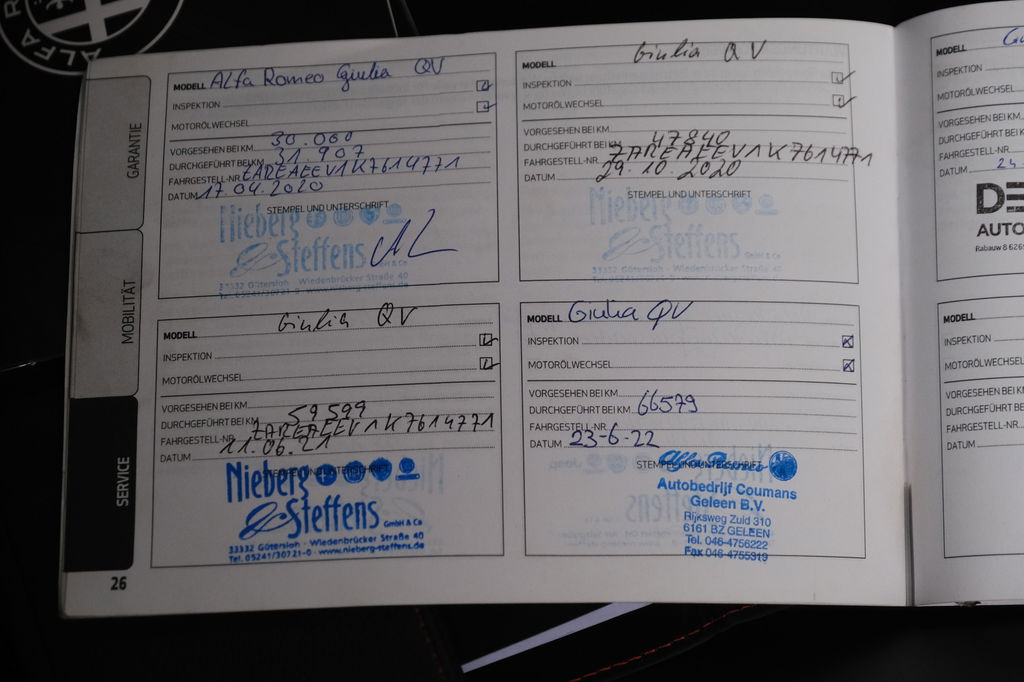 ALFA R
GARANTIE
MOBILITÄT
SERVICE
MODELL Alfa Romeo Giulia QV
INSPEKTION
MOTORÖLWECHSEL
VORGESEHEN BEI KM 30.000
DURCHGEFÜHRT BEI KM 31.907
FAHRGESTELL-NR. ZAREAEEV1K7614771
DATUM 17.04.2020
STEMPEL UND UNTERSCHRIFT
Nieberg
Steffens
GmbH & Co
33332 Gütersloh · Wiedenbrücker Straße 40
Tel. 05241/30721-0 · www.nieberg-steffens.de
MODELL Giulia QV
INSPEKTION
MOTORÖLWECHSEL
VORGESEHEN BEI KM
DURCHGEFÜHRT BEI KM 47840
FAHRGESTELL-NR. ZAREAEEV1K7614771
DATUM 29.10.2020
STEMPEL UND UNTERSCHRIFT
Nieberg
Steffens
GmbH & Co
33332 Gütersloh · Wiedenbrücker Straße 40
MODELL Giulia QV
INSPEKTION
MOTORÖLWECHSEL
VORGESEHEN BEI KM
DURCHGEFÜHRT BEI KM 59599
FAHRGESTELL-NR. ZAREAEEV1K7614771
DATUM 11.06.21
STEMPEL UND UNTERSCHRIFT
Nieberg
Steffens
GmbH & Co
33332 Gütersloh · Wiedenbrücker Straße 40
Tel. 05241/30721-0 · www.nieberg-steffens.de
MODELL Giulia QV
INSPEKTION
MOTORÖLWECHSEL
VORGESEHEN BEI KM
DURCHGEFÜHRT BEI KM 66579
FAHRGESTELL-NR.
DATUM 23-6-22
STEMPEL UND UNTERSCHRIFT
Alfa Romeo
Autobedrijf Coumans
Geleen B.V.
Rijksweg Zuid 310
6161 BZ GELEEN
Tel. 046-4756222
Fax 046-4755319
26
MODELL
INSPEKTION
MOTORÖLWECHSEL
VORGESEHEN BEI K
DURCHGEFÜHRT BE
FAHRGESTELL-NR.
DATUM 24
AUTO
Rabauw 8 626
MODELL
INSPEKTION
MOTORÖLWECHSEL
VORGESEHEN BEI K
DURCHGEFÜHRT BE
FAHRGESTELL-NR.
DATUM